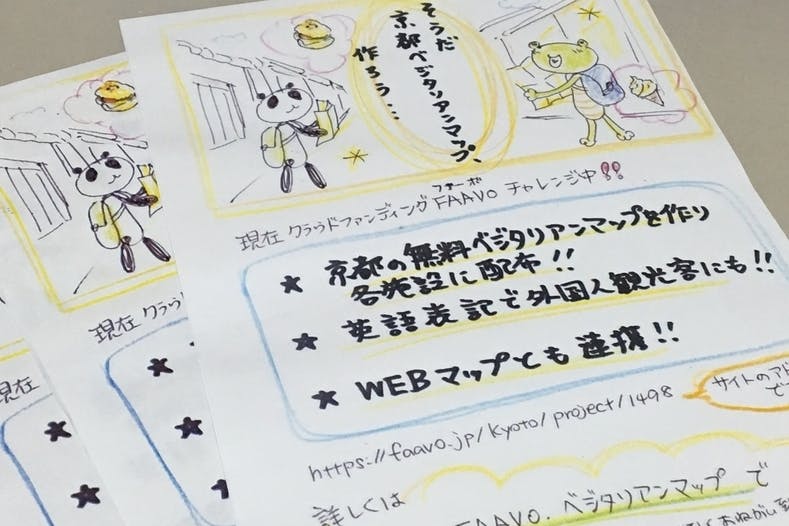 そうだ
京都ベジタリアンマップ、
作ろう…
ファーボ
現在 クラウドファンディング FAAVO チャレンジ中!!
★ 京都の無料ベジタリアンマップを作り
各施設に配布!!
★ 英語表記で外国人観光客にも!!
★ WEBマップとも連携!!
https://faavo.jp/kyoto/project/1498
サイトのアド
で
詳しくは
FAAVO. ベジタリアンマップ で
現在 クラウド
現在